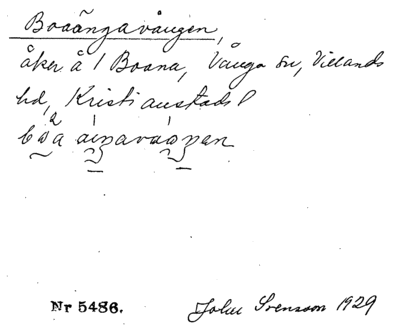 Boaängavången,
åker å 1 Boana, Vånga sn, Villands
hd, Kristianstads l
Nr 5486.
John Svensson 1929